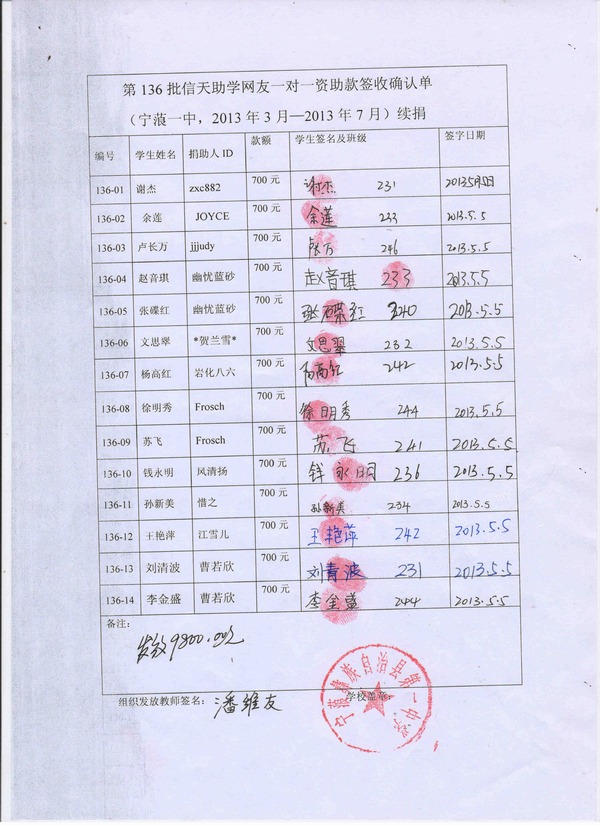 第 136 批信天助学网友一对一资助款签收确认单
（宁蒗一中，2013 年 3 月—2013 年 7 月）续捐
编号 学生姓名 捐助人 ID 款额 学生签名及班级 签字日期
136-01 谢杰 zxc882 700 元 谢杰 231 2013.5月5日
136-02 余莲 JOYCE 700 元 余莲 233 2013.5.5
136-03 卢长万 jjjudy 700 元 卢长万 246 2013.5.5
136-04 赵音琪 幽忧蓝砂 700 元 赵音琪 233 2013.5.5
136-05 张碟红 幽忧蓝砂 700 元 张碟红 240 2013.5.5
136-06 文思翠 *贺兰雪* 700 元 文思翠 232 2013.5.5
136-07 杨高红 岩化八六 700 元 杨高红 242 2013.5.5
136-08 徐明秀 Frosch 700 元 徐明秀 244 2013.5.5
136-09 苏飞 Frosch 700 元 苏飞 241 2013.5.5
136-10 钱永明 风清扬 700 元 钱永明 236 2013.5.5
136-11 孙新美 惜之 700 元 孙新美 234 2013.5.5
136-12 王艳萍 江雪儿 700 元 王艳萍 242 2013.5.5
136-13 刘清波 曹若欣 700 元 刘青波 231 2013.5.5
136-14 李金盛 曹若欣 700 元 李金盛 244 2013.5.5
备注：
发放9800.00元
组织发放教师签名： 潘维友 学校盖章：
宁蒗彝族自治县第一中学